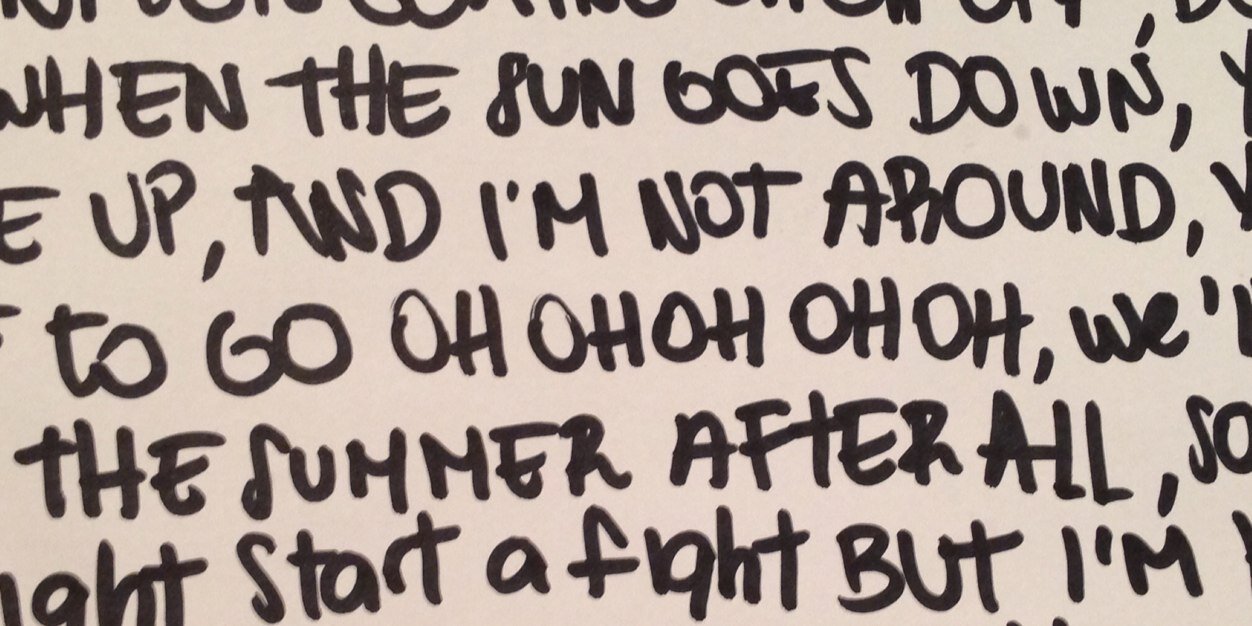 WHEN THE SUN GOES DOWN,
UP, AND I'M NOT AROUND,
to GO OH OHOH OHOH, we'l
THE SUMMER AFTER ALL, SO
ight Start a fight BUT I'M